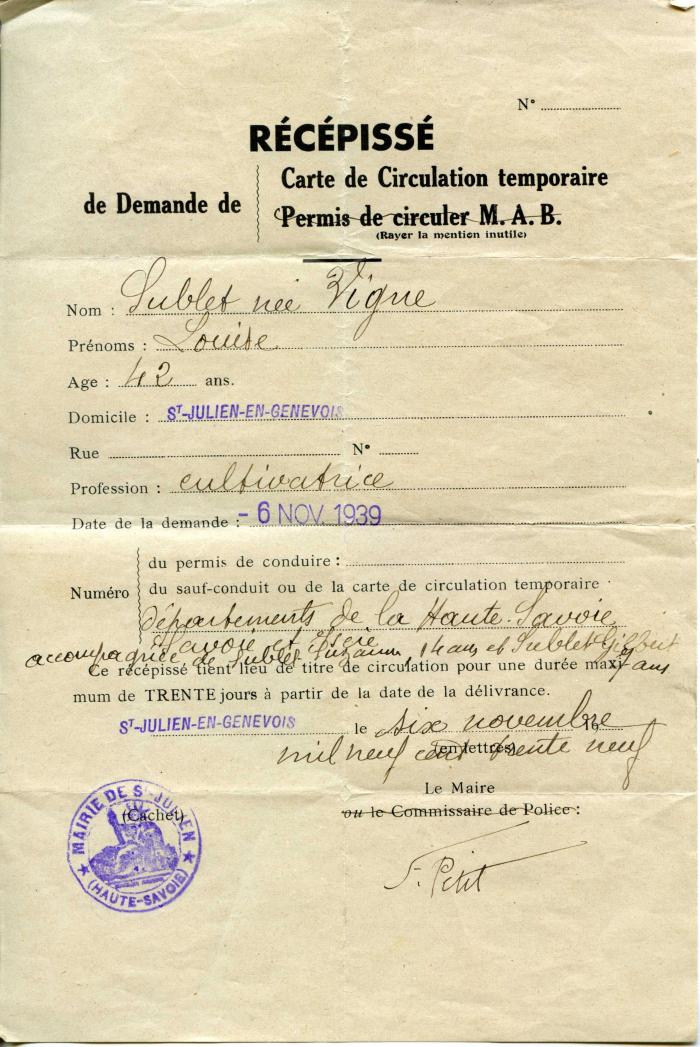 N° ....................
RÉCÉPISSÉ
de Demande de
Carte de Circulation temporaire
Permis de circuler M. A. B.
(Rayer la mention inutile)
Nom : Sublet née Vigne
Prénoms : Louise
Age : 42 ans.
Domicile : ST-JULIEN-EN-GENEVOIS
Rue .................... N° ..........
Profession : cultivatrice
Date de la demande : - 6 NOV. 1939
Numéro
du permis de conduire : ....................
du sauf-conduit ou de la carte de circulation temporaire
départements de la Haute-Savoie
Savoie et Isère
accompagnée de Sublet Suzanne, 14 ans et Sublet Gilbert
7 ans
Ce récépissé tient lieu de titre de circulation pour une durée maxi-
mum de TRENTE jours à partir de la date de la délivrance.
ST-JULIEN-EN-GENEVOIS le six novembre 19
mil neuf cent trente neuf
(en lettres)
Le Maire
ou le Commissaire de Police :
(Cachet)
MAIRIE DE ST-JULIEN
(HAUTE-SAVOIE)
F. Petit